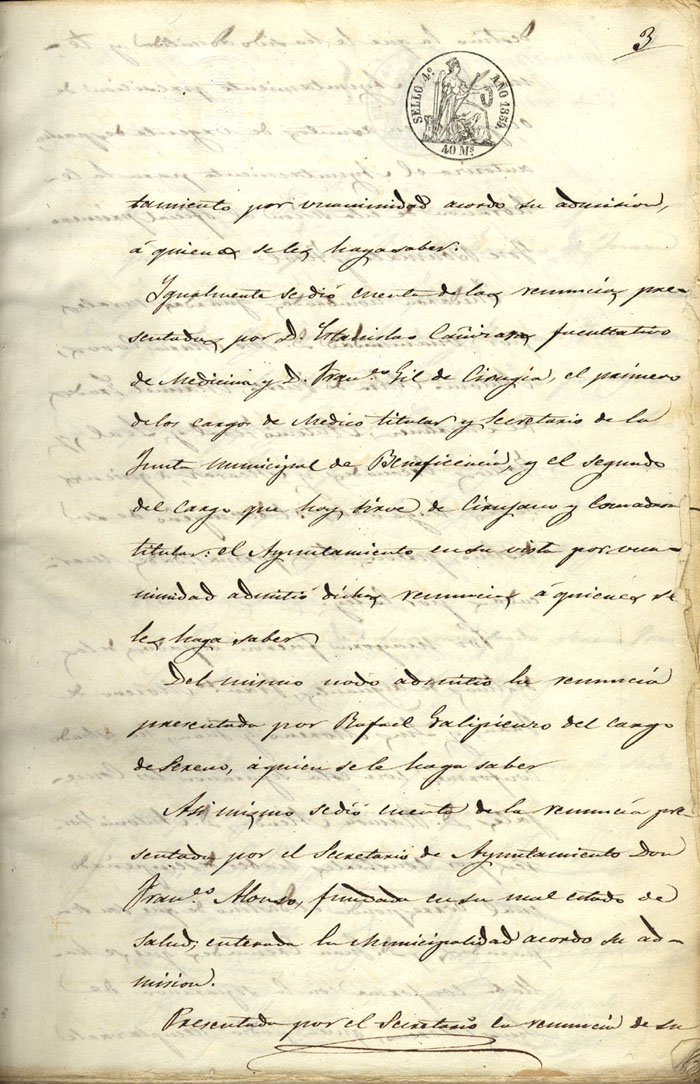 3
SELLO 4.º AÑO 1859.
40 Ms
tamiento por unanimidad acordo su admision,
á quienes se les haga saber.
Igualmente se dió cuenta de las renuncias pre-
sentadas por D. Estanislao facultativo
de Medicina y D. Fran.co Gil de Cirugia, el primero
de los cargos de Medico titular y Secretario de la
Junta Municipal de Beneficencia, y el segundo
del cargo que hoy sirve de Cirujano y Comadron
titular: el Ayuntamiento en su vista por una-
nimidad admitió dichas renuncias á quienes se
les haga saber
Del mismo modo admitio la renuncia
presentada por Rafael Galipienzo del cargo
de Sereno, á quien se le haga saber
Asi mismo se dió cuenta de la renuncia pre-
sentada por el Secretario de Ayuntamiento Don
Fran.co Alonso, fundada en su mal estado de
salud; enterada la Municipalidad acordo su ad-
mision.
Presentada por el Secretario la renuncia de su